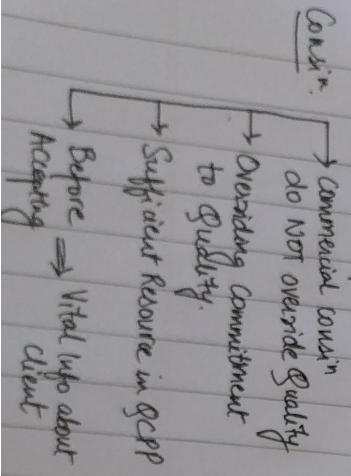 Consin.
Commercial Consin
do NOT override Quality
Overriding Commitment
to Quality.
Sufficient Resource in QCPP
Before
Accepting ⇒ Vital Info about
Client